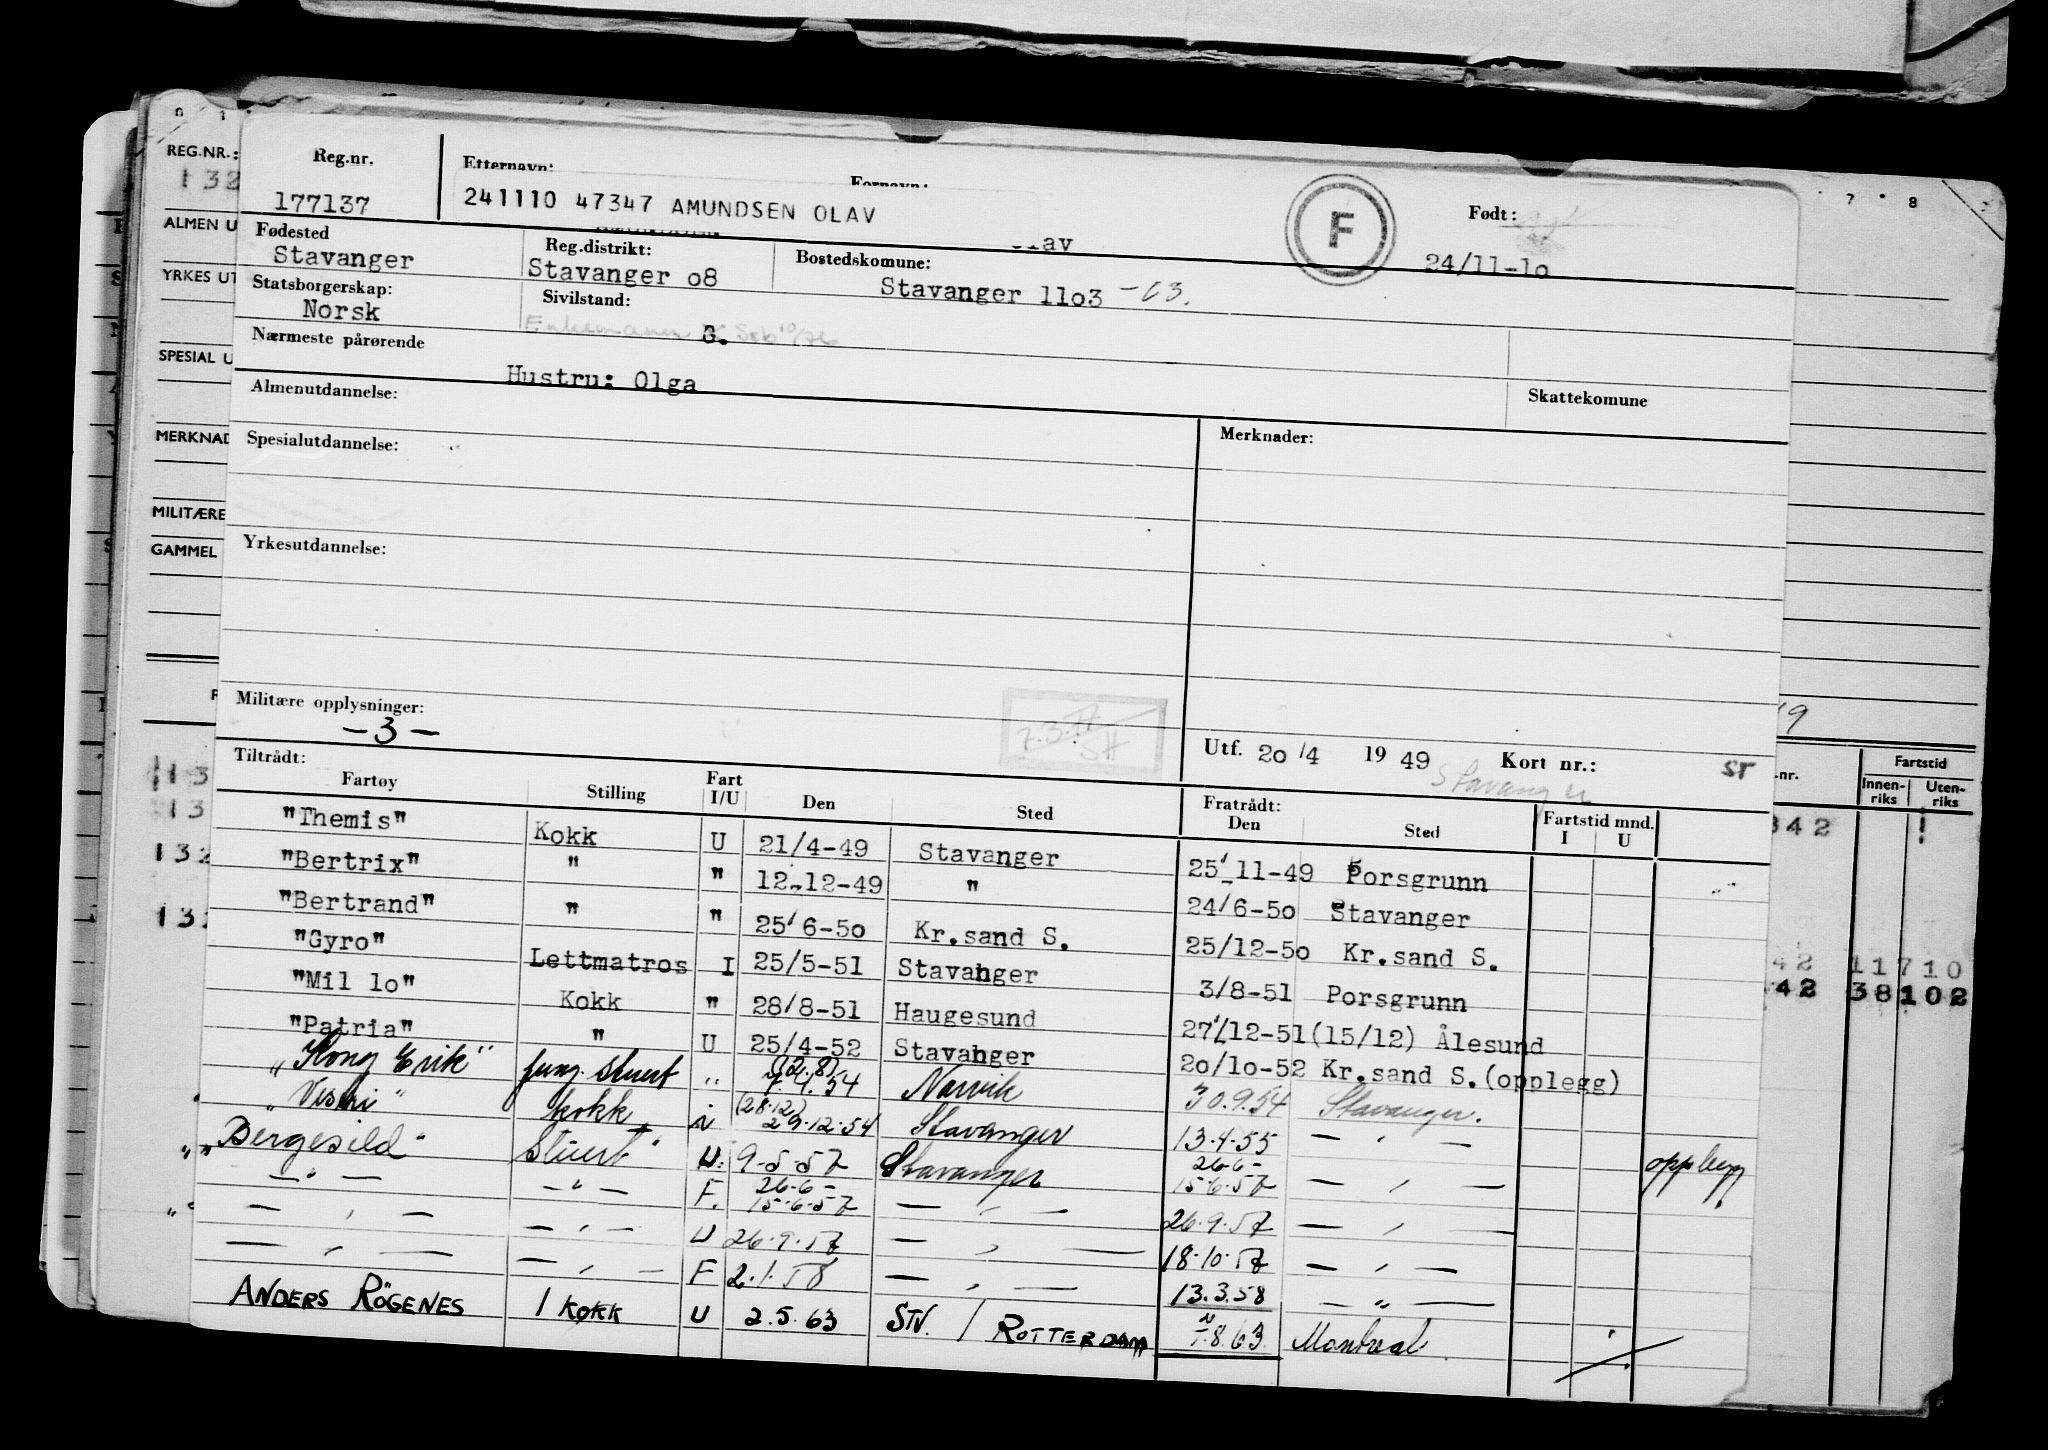 REG.NR.:
132
ALMEN U
YRKES UT
SPESIAL U
MERKNAD
MILITÆRE
GAMMEL
Reg.nr. Etternavn: Fornavn: Født:
177137 241110 47347 AMUNDSEN OLAV F 24/11-1o
Fødested Reg.distrikt: Bostedskomune:
Stavanger Stavanger o8 Stavanger 11o3 -03.
Statsborgerskap: Sivilstand:
Norsk Enkemann G.
Nærmeste pårørende
Hustru: Olga
Almenutdannelse: Skattekomune
Spesialutdannelse: Merknader:
Yrkesutdannelse:
Militære opplysninger:
-3-
Utf. 2o/4 1949 Kort nr.: ST
Stavanger
Tiltrådt: Fratrådt:
Fartøy Stilling Fart I/U Den Sted Den Sted Fartstid mnd. I U
"Themis" Kokk U 21/4-49 Stavanger 25/11-49 Porsgrunn
"Bertrix" " " 12-12-49 " 24/6-5o Stavanger
"Bertrand" " " 25/6-5o Kr.sand S. 25/12-5o Kr.sand S.
"Gyro" Lettmatros I 25/5-51 Stavanger 3/8-51 Porsgrunn
"Mil lo" Kokk " 28/8-51 Haugesund 27/12-51(15/12) Ålesund
"Patria" " U 25/4-52 Stavanger 2o/1o-52 Kr.sand S.(opplegg)
"Kong Erik" jung. stuert " (12.8) 7.4.54 Narvik 30.9.54 Stavanger.
"Vestri" kokk (28.12) 29.12.54 Stavanger 13.4.55 — " —
"Bergesild" Stuert U. 9.5.57 Stavanger 26-6- 15.6.57 — " — opplegg
— " — — " — F. 26-6- 15.6.57 — " — 26.9.57 — " —
— " — — " — U 26.9.57 — " — 18.10.57 — " —
— " — — " — F 2.1.58 — " — 13.3.58 — " —
ANDERS RÖGENES 1 KOKK U 2.5.63 STV. / ROTTERDAM .8.63. Montreal
.nr. Fartstid
Innen-riks Uten-riks
342
42 11710
42 38102